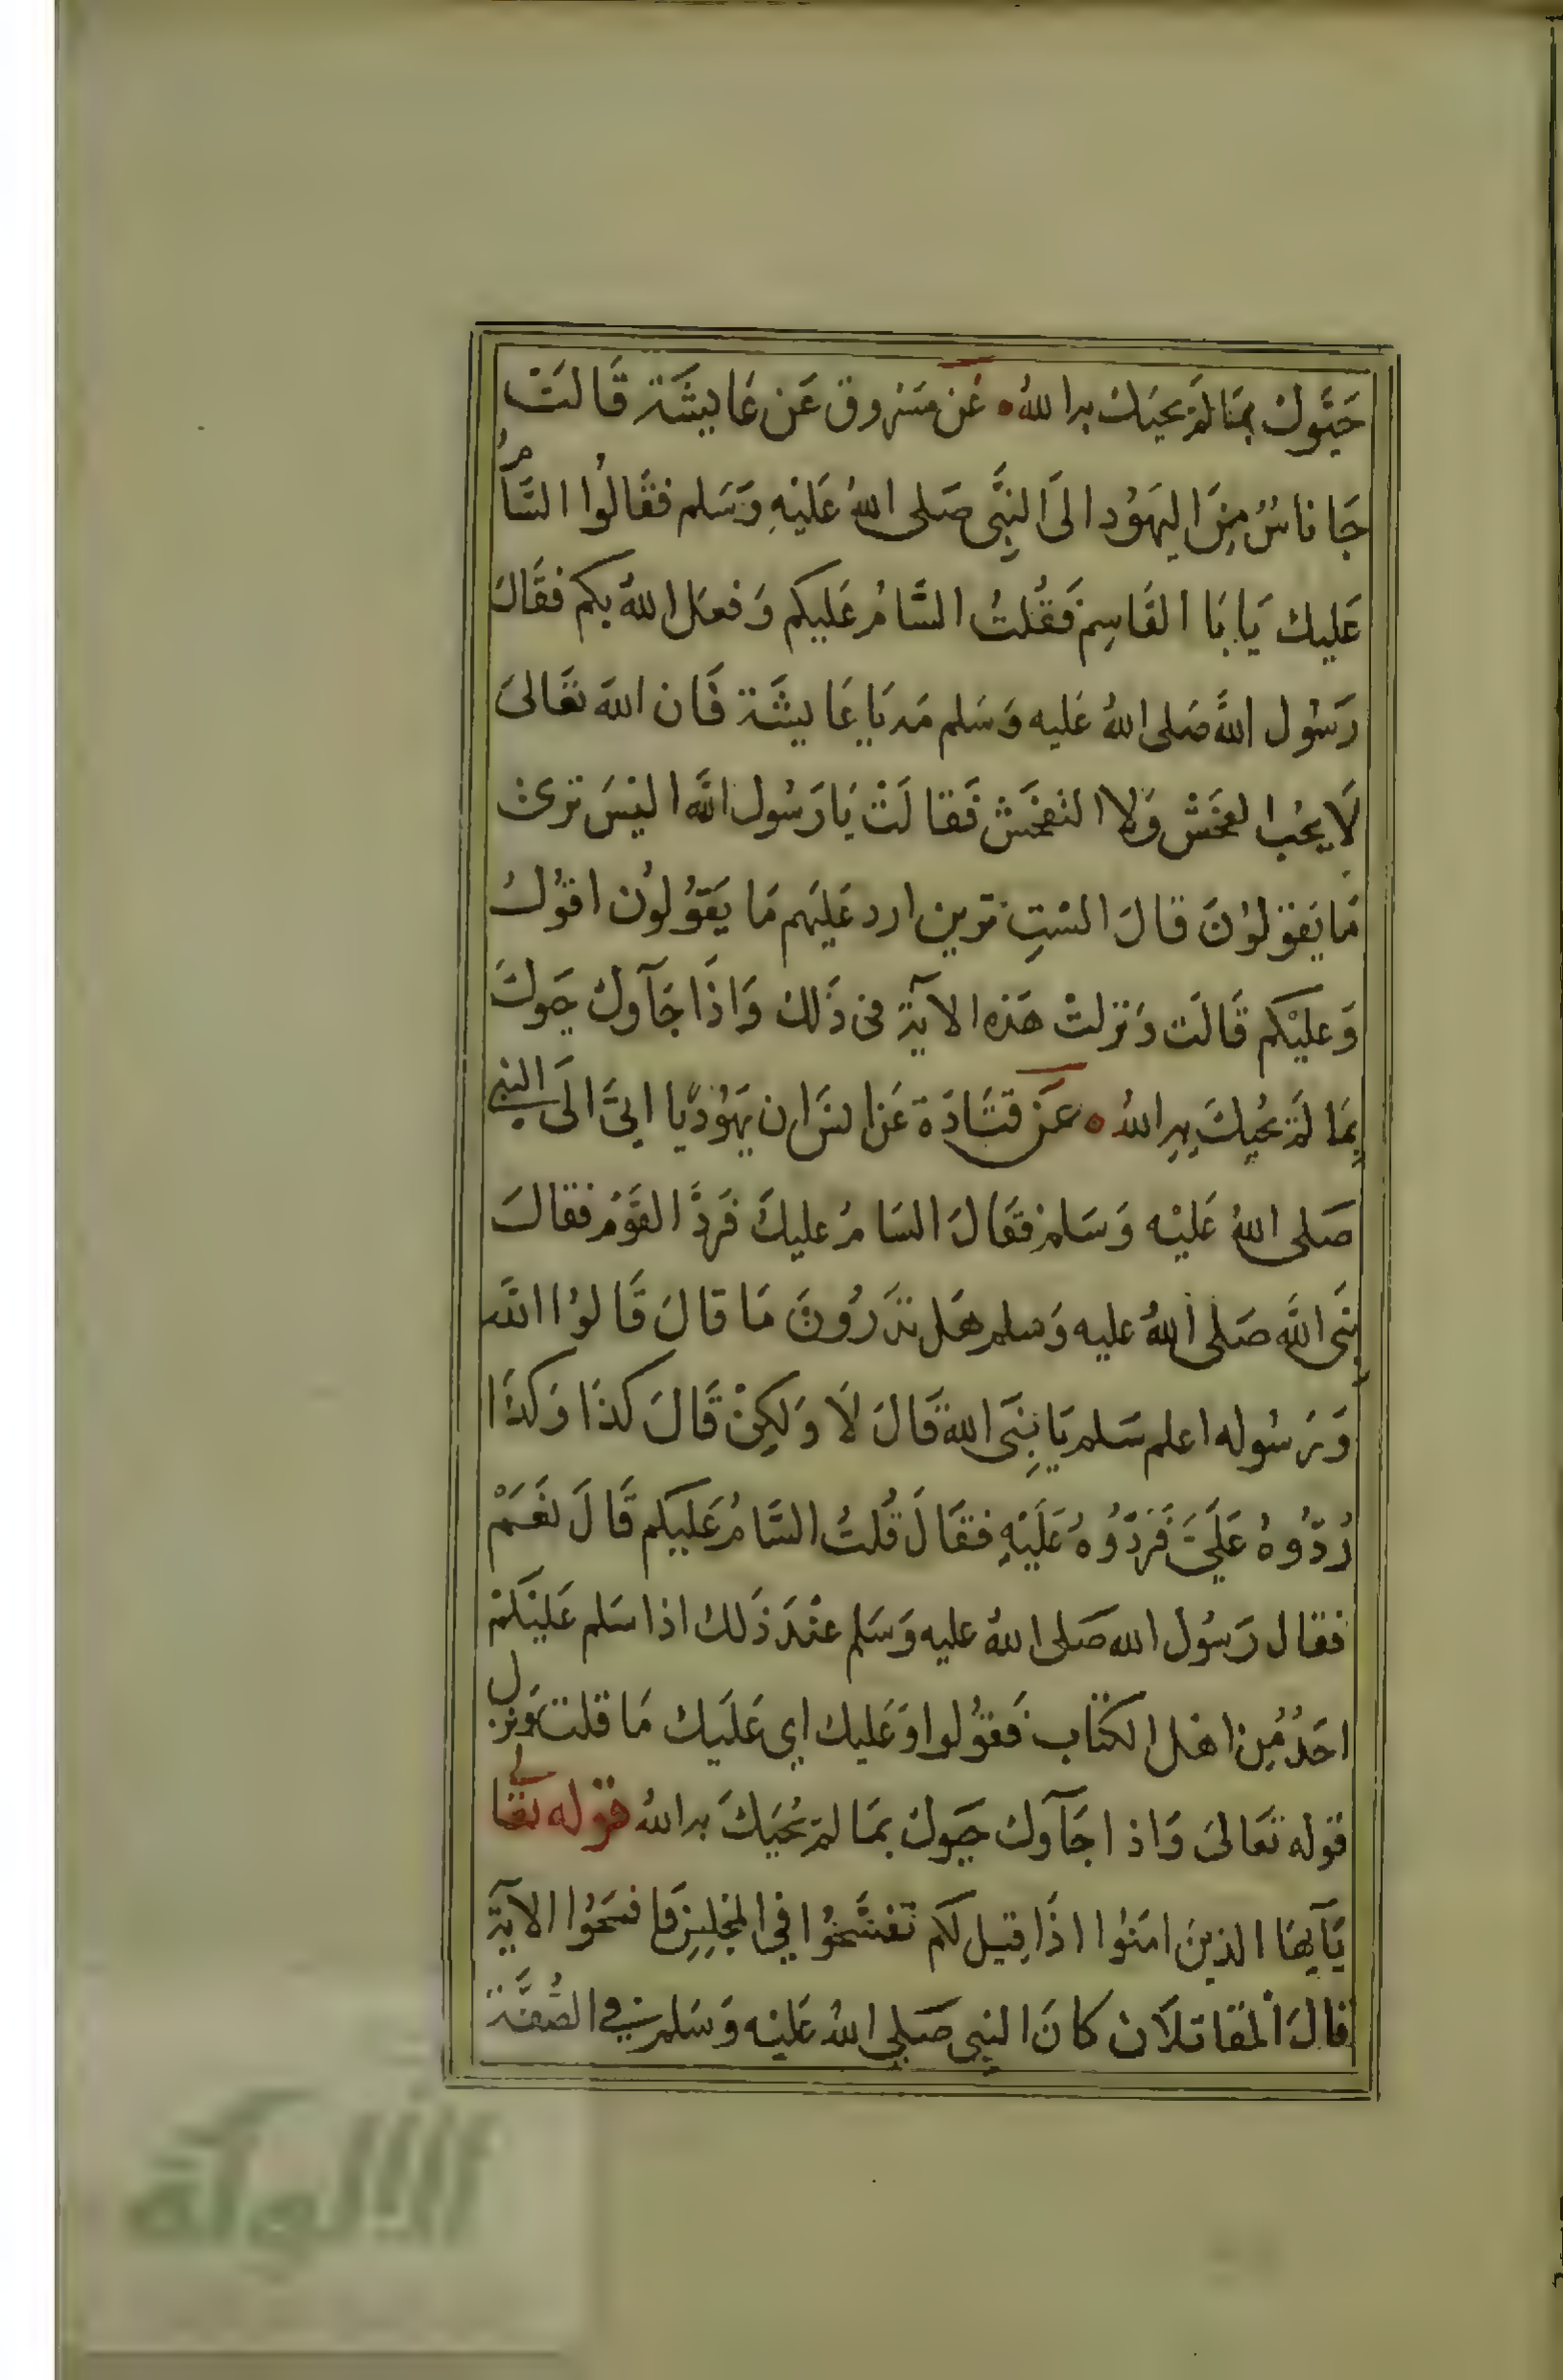 حَيَّوك بمَا لمَ يحيك به اللهُ • عَن مَسْروق عَن عَايشَة قَالَتْ
جَا ناسٌ مِنَ اليهَوُد الىَ النبِّى صَلى اللهُ عَليْهِ وَسَلم فقَالوُا السَّامُ
عَليك يَا بَا القَاسِم فَقُلتُ السَّامُ عَليكم وَفعَل اللهُ بكم فقَالَ
رَسوُل اللهَّ صَلى اللهُ عَليه وَسَلم مَه يَا عَايشَة فَان اللهَ تعَالىَ
لَا يحُب الفحْشَ وَلا التفحْش فَقالَتْ يَا رَسُول اللهَّ اليْسَ ترىَ
مَا يَقوُلوُنَ قالَ السْتِ ترين ارد عَليَهم مَا يَقوُلوُن اقوُلُ
وَعليْكم قَالَت وَنزلتْ هَذه الآية فى ذَلكَ وَاذَا جَآوكَ حيوكَ
بمَا لمَ يحُيكَ بهِ اللهُ • عَن قتَادَة عَن انسَ ان يهَوُديًا اتىَ الىَ النبي
صَلى اللهُ عَليْه وَسَلم فقَالَ السَامُ عليكَ فَردَّ القَوْمُ فقالَ
نبَى اللهَّ صَلى اللهُ عليه وَسلم هَل تدَروُنَ مَا قالَ قَالوُا اللهَّ
وَرَسُوله اعلم سَلم يَا نبِىَ الله قَالَ لَا وَلكِنْ قَالَ كذَا وَكذَا
رُدّوُهُ عَلَيَّ فَردّوُهُ عَليَهِ فقَالَ قُلتُ السَّامُ عَليكم قَالَ نعَمَْ
فقال رَسوُل الله صَلى اللهُ عليه وَسَلم عنْدَ ذَلك اذا سَلم عَليْكمْ
احَدٌ مُن اهْل الكتاب فَقوُلوا وَعَليك اي عَليَك مَا قلت وَنزل
قوله تعَالىَ وَاذا جَآوكَ حيوكَ بمَا لم يُحيَكَ به اللهُ قوله تعَالى
يَآيهَا الذينَ امَنوُا اذَا قِيل لكم تَفسَّحوُا فىِ المجْلِسِ فَافسَحوُا الآية
قالَ المقَاتلَان كانَ النبي صَلى اللهُ عَليْه وَسَلم في الصُفَّة
الألوكة